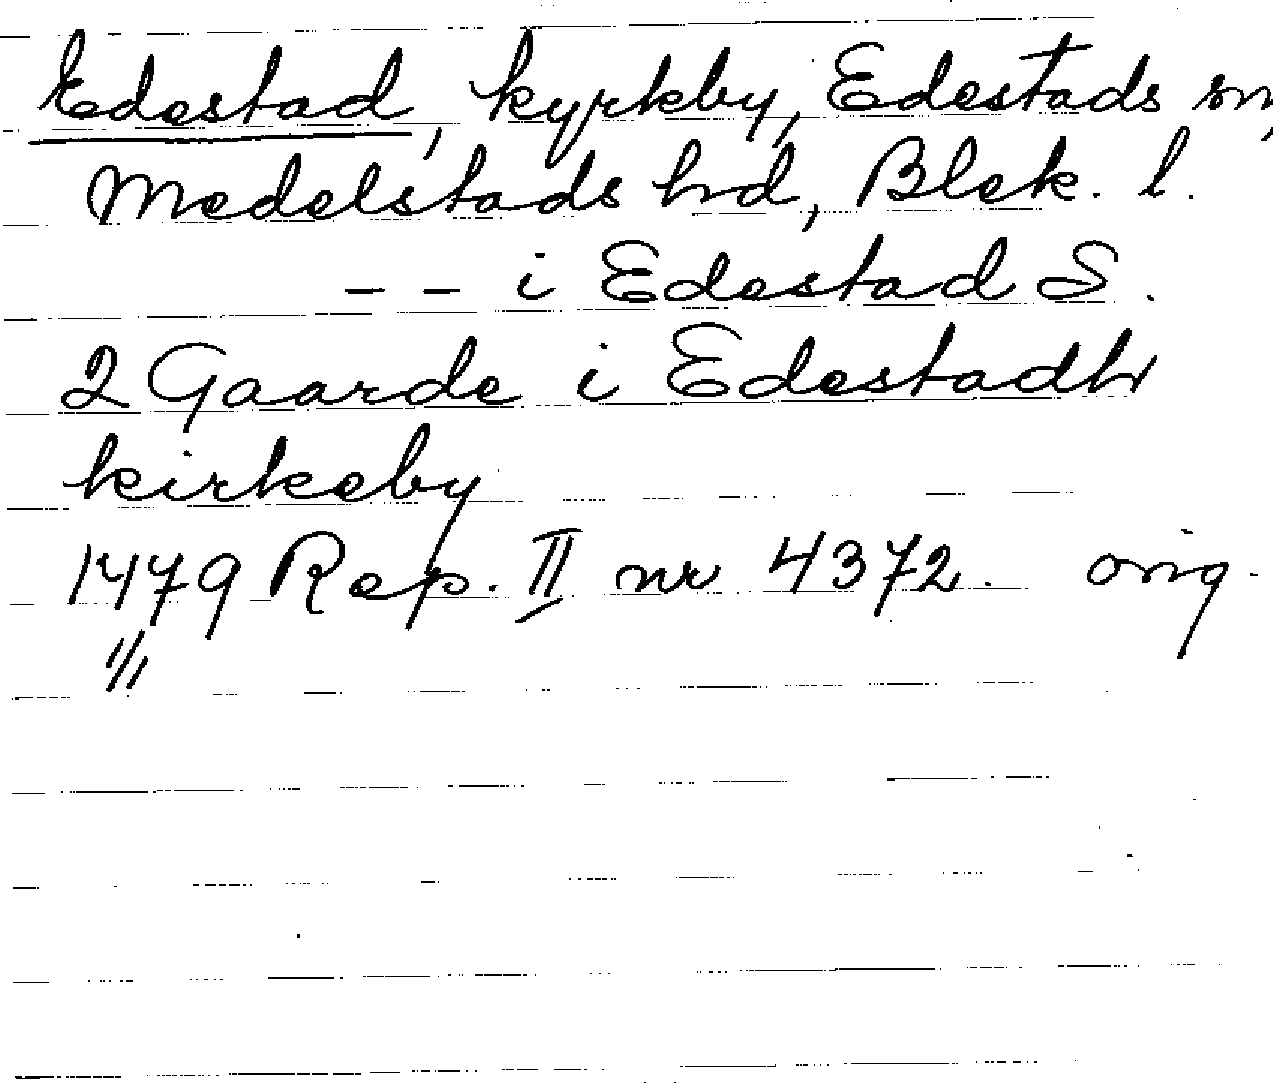 Edestad, kyrkby, Edestads sn,
Medelstads hd, Blek. l.
-- i Edestad S.
2 Gaarde i Edestadh
kirkeby
1479 Rep. II nr 4372. orig.